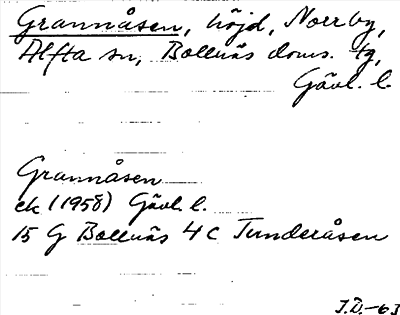 Grannåsen, höjd, Norrby,
Alfta sn, Bollnäs doms. tg,
Gävl. l.
Grannåsen
ek (1958) Gävl. l.
15 G Bollnäs 4 c Tunderåsen
J.D. -63